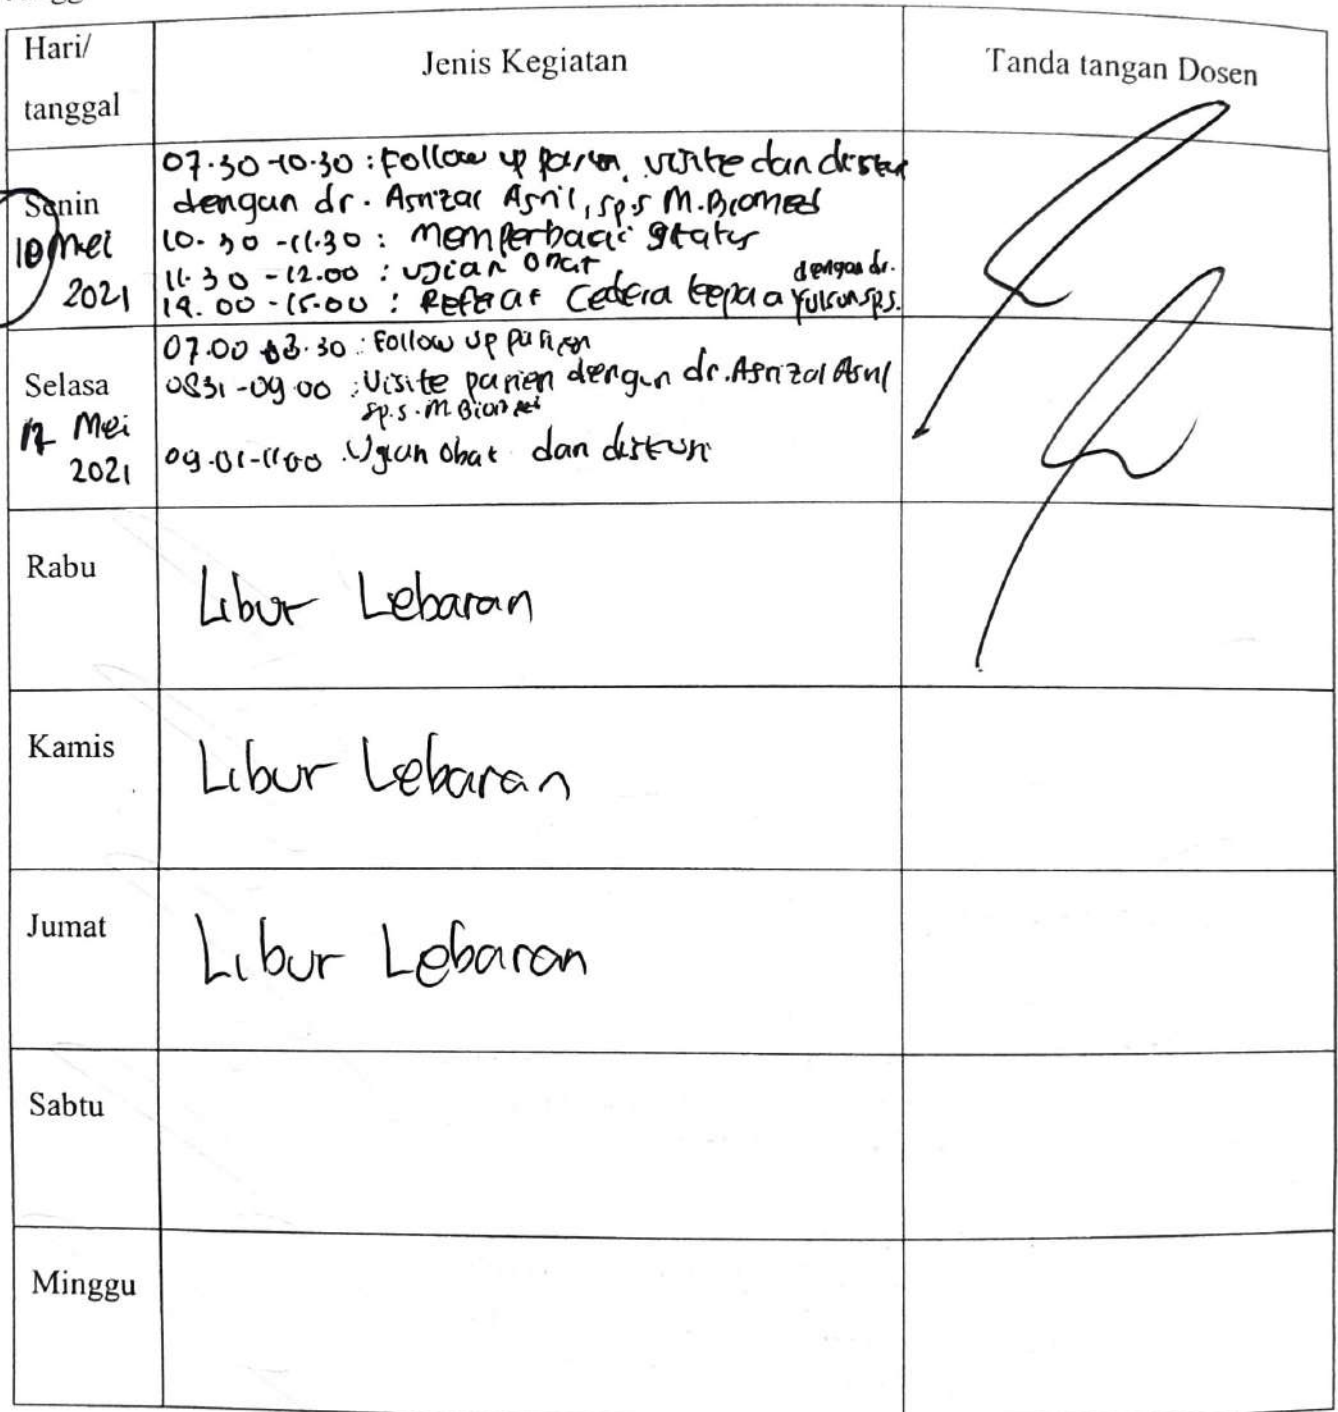 Hari/
tanggal
Jenis Kegiatan
Tanda tangan Dosen
Senin
10 Mei
2021
07.30-10.30 : Follow up pasien, visite dan diskusi
dengan dr. Asrizal Asril, sp.s M.Biomed
10.30-11.30 : Memperbaiki status
11.30-12.00 : Ujian Obat
14.00-15.00 : Referat Cedera kepala dengan dr.
sps.
Selasa
Mei
2021
07.00 08.30 : Follow up pasien
0831-09.00 : Visite pasien dengan dr. Asrizal Asril
sp.s. M Biomed
09.01-1100 Ujian Obat dan diskusi
Rabu
Libur Lebaran
Kamis
Libur Lebaran
Jumat
Libur Lebaran
Sabtu
Minggu